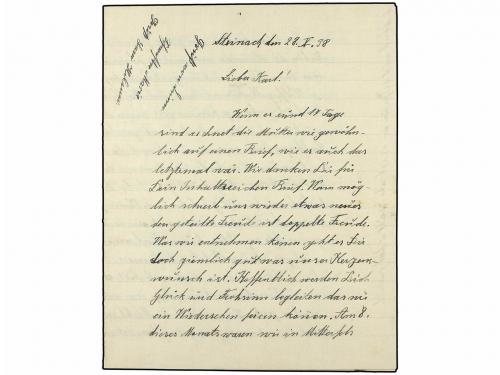 Steinach den 28. V. 38
Lieber Karl!
Wenn es rund 14 Tage
sind rechnet die Mutter wie gewöhn-
lich auf einen Brief, wie es auch das
letztemal war. Wir danken Dir für
Dein Inhaltsreichen Brief. Wenn mög-
lich schreib uns wieder etwas neues
den geteilte Freude ist doppelte Freude.
Was wir entnehmen könen geht es Dir
doch ziemlich gut was unser Herzen-
wunsch ist. Hoffentlich werden Dich
Glück und Frohsinn begleiten das wir
ein Wiedersehen feiern könen. Am 8.
dieses Monats waren wir in Mitterfels
Gruß von
Gruß